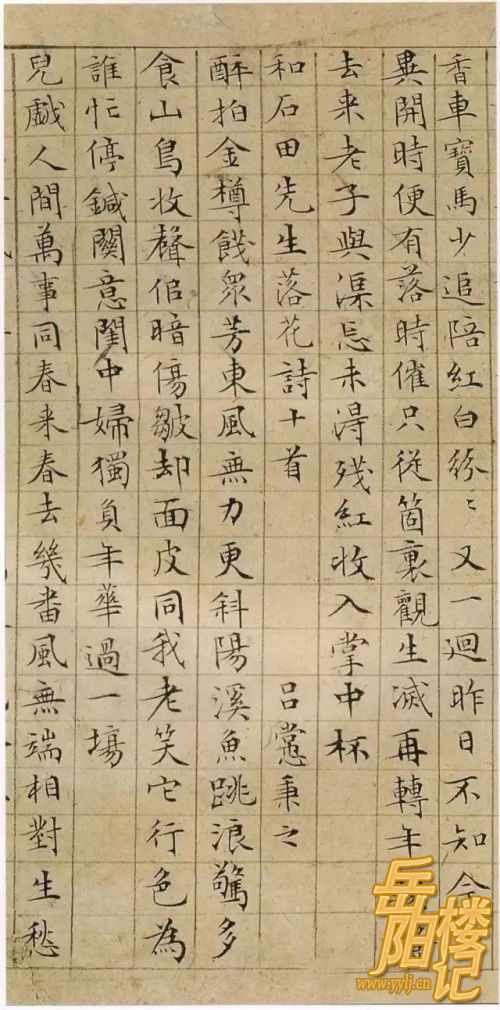 香車寶馬少追陪紅白紛〻又一迴昨日不知今
異開時便有落時催只從箇裏觀生滅再轉年
去来老子與渠忘未得殘紅收入掌中杯
和石田先生落花詩十首 吕㦂秉之
醉拍金樽餞衆芳東風無力更斜陽溪魚跳浪驚多
食山鳥收聲倍暗傷皺却面皮同我老笑它行色為
誰忙停鍼関意閨中婦獨負年華過一塲
兒戯人間萬事同春来春去幾番風無端相對生愁
岳阳楼记
www.yylj.cn